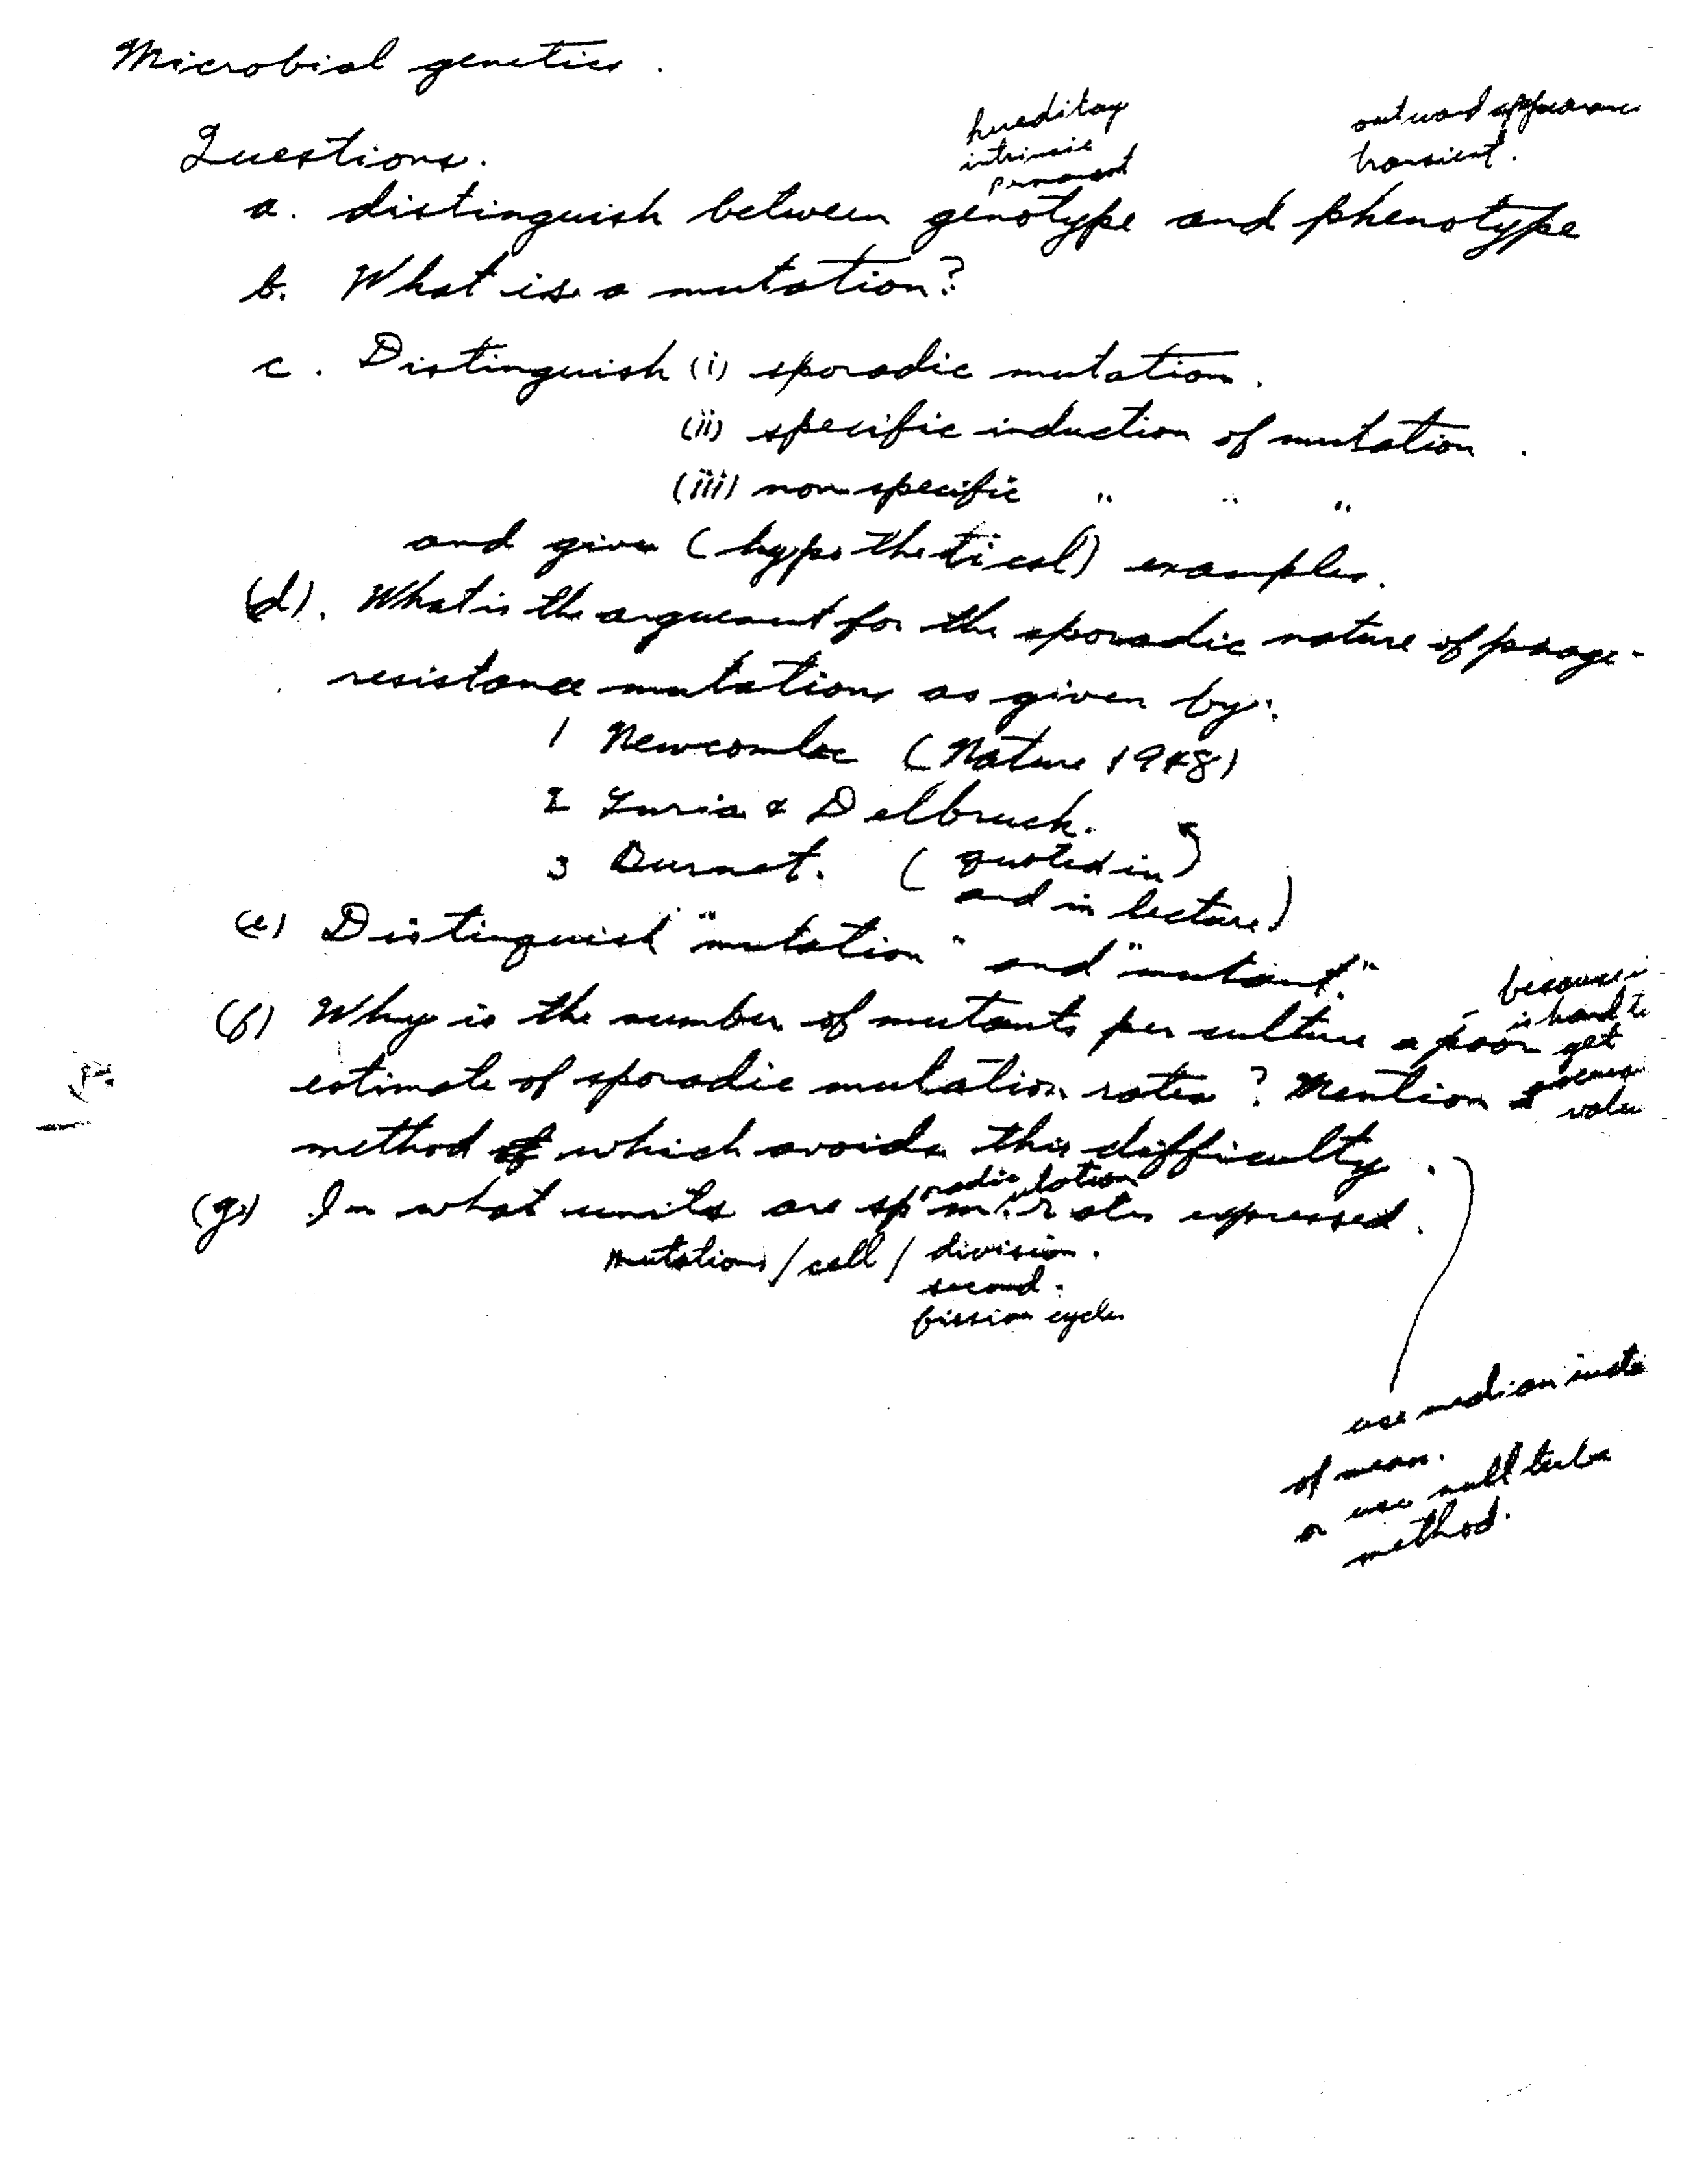 Microbial genetics.
Questions.
hereditay
intrinsic
permanent
outward appearance
transient.
a. distinguish between genotype and phenotype
b. What is a mutation?
c. Distinguish (i) sporadic mutation.
(ii) specific induction of mutation.
(iii) non specific " " "
and give (hypothetical) examples.
(d). What is the arguement for the sporadic nature of phage-
resistance mutations as given by:
1 Newcombe (Nature 1948)
2 Luria & Delbruck.
3 Burnet. (quoted in)
and in lecture)
(e) Distinguish "mutation" and "mutant."
(f) Why is the number of mutants per culture a poor
estimate of sporadic mutation rates? Mention a
method which avoids this difficulty.
because
is hard to
get
valu
(g) In what units are sporadic mutation rates expressed.
mutations / cell / division.
second.
fission cycle
use median inste
of mean.
or use null tube
method.